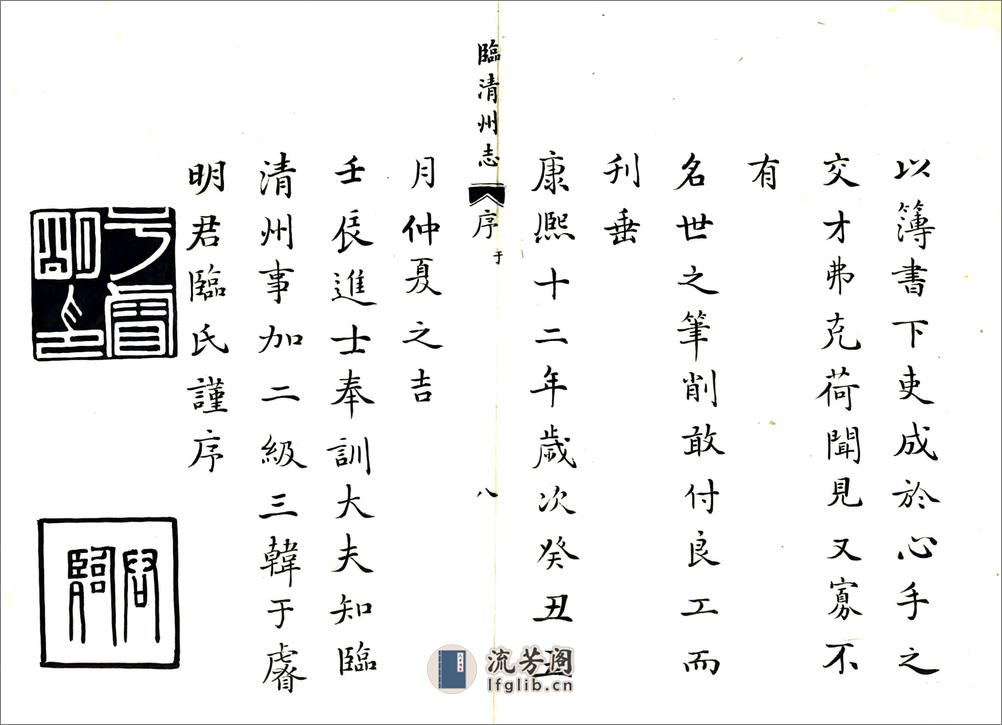 以簿書下吏成於心手之
交才弗克荷聞見又寡不
有
名世之筆削敢付良工而
刊垂
康熙十二年歲次癸丑五
臨清州志 序 于 八
月仲夏之吉
壬辰進士奉訓大夫知臨
清州事加二級三韓于睿
明君臨氏謹序
于睿明印
君臨
流芳阁
lfglib.cn